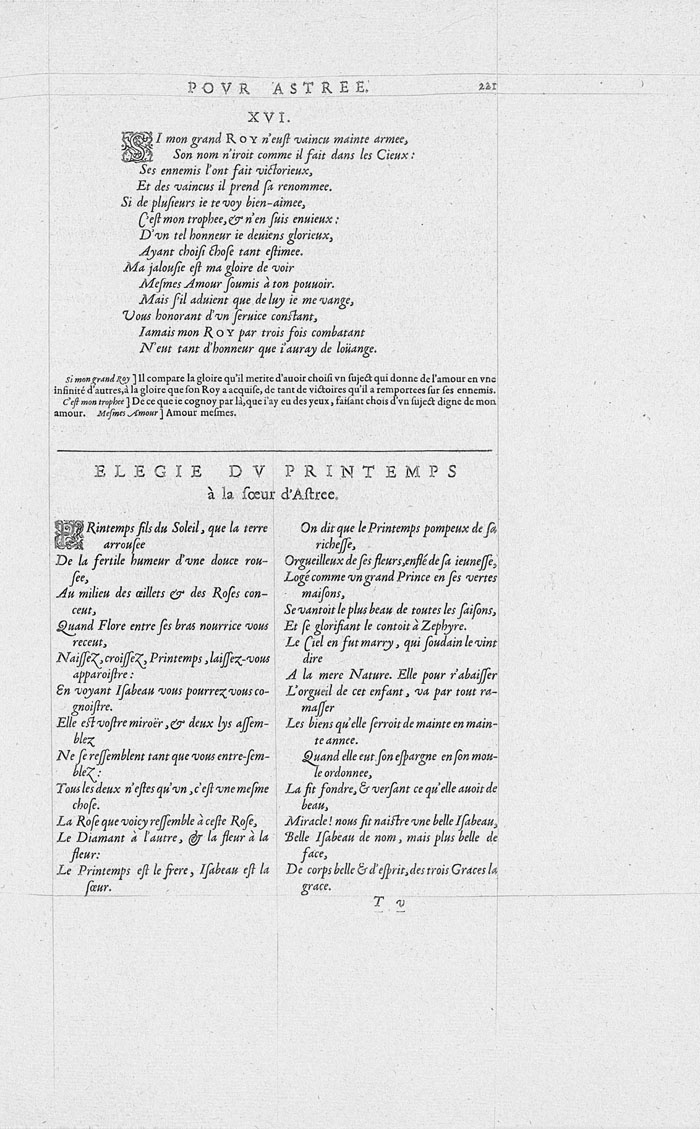 POVR ASTREE. 221
XVI.
SI mon grand ROY n'eust vaincu mainte armee,
Son nom n'iroit comme il fait dans les Cieux :
Ses ennemis l'ont fait victorieux,
Et des vaincus il prend sa renommee.
Si de plusieurs ie te voy bien-aimee,
C'est mon trophee, & n'en suis enuieux :
D'vn tel honneur ie deuiens glorieux,
Ayant choisi chose tant estimee.
Ma jalousie est ma gloire de voir
Mesmes Amour soumis à ton pouuoir.
Mais s'il aduient que de luy ie me vange,
Vous honorant d'vn seruice constant,
Iamais mon ROY par trois fois combatant
N'eut tant d'honneur que i'auray de loüange.
Si mon grand Roy ] Il compare la gloire qu'il merite d'auoir choisi vn suject qui donne de l'amour en vne
infinité d'autres, à la gloire que son Roy a acquise, de tant de victoires qu'il a remportees sur ses ennemis.
C'est mon trophee ] De ce que ie cognoy par là, que i'ay eu des yeux, faisant chois d'vn suject digne de mon
amour. Mesmes Amour ] Amour mesmes.
ELEGIE DV PRINTEMPS
à la sœur d'Astree.
PRintemps fils du Soleil, que la terre
arrousee
De la fertile humeur d'vne douce rou-
see,
Au milieu des œillets & des Roses con-
ceut,
Quand Flore entre ses bras nourrice vous
receut,
Naissez, croissez, Printemps, laissez-vous
apparoistre :
En voyant Isabeau vous pourrez vous co-
gnoistre.
Elle est vostre miroër, & deux lys assem-
blez
Ne se ressemblent tant que vous entre-sem-
blez :
Tous les deux n'estes qu'vn, c'est vne mesme
chose.
La Rose que voicy ressemble à ceste Rose,
Le Diamant à l'autre, & la fleur à la
fleur:
Le Printemps est le frere, Isabeau est la
sœur.
On dit que le Printemps pompeux de sa
richesse,
Orgueilleux de ses fleurs, enflé de sa ieunesse,
Logé comme vn grand Prince en ses vertes
maisons,
Se vantoit le plus beau de toutes les saisons,
Et se glorifiant le contoit à Zephyre.
Le Ciel en fut marry, qui soudain le vint
dire
A la mere Nature. Elle pour r'abaisser
L'orgueil de cet enfant, va par tout ra-
masser
Les biens qu'elle serroit de mainte en main-
te annee.
Quand elle eut son espargne en son mou-
le ordonnee,
La fit fondre, & versant ce qu'elle auoit de
beau,
Miracle ! nous fit naistre vne belle Isabeau,
Belle Isabeau de nom, mais plus belle de
face,
De corps belle & d'esprit, des trois Graces la
grace.
T v